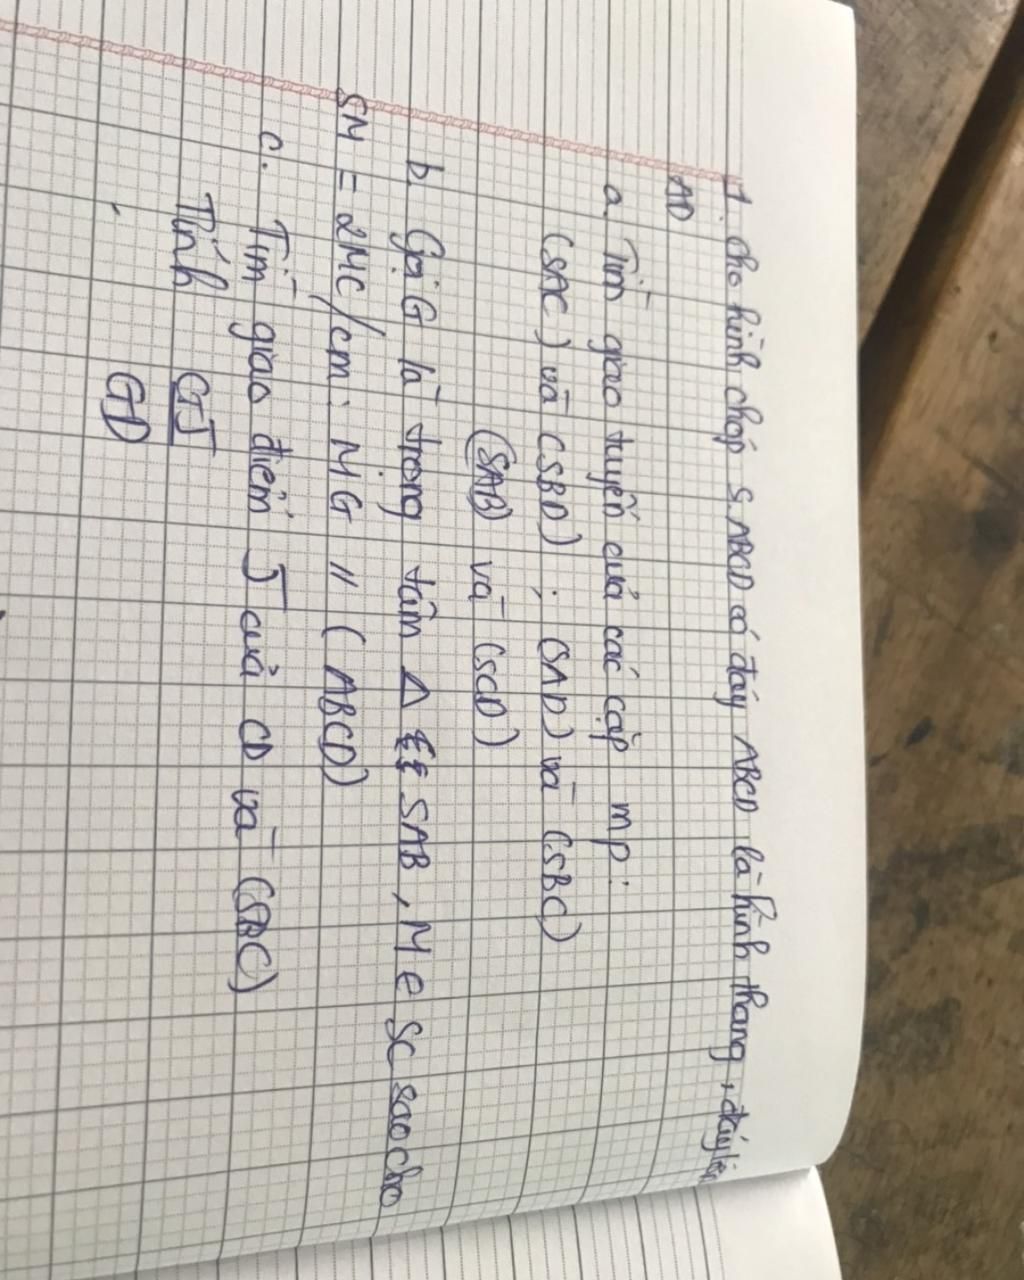 1. Cho hình chóp S.ABCD có đáy ABCD là hình thang, đáy lớn
AD
a. Tìm giao tuyến của các cặp mp:
(SAC) và (SBD) ; (SAD) và (SBC)
(SAB) và (SCD)
b. Gọi G là trọng tâm Δ SAB, M ∈ SC sao cho
SM = 2MC / cm: MG // (ABCD)
c. Tìm giao điểm J của CD và (SBC)
Tính GJ
GD